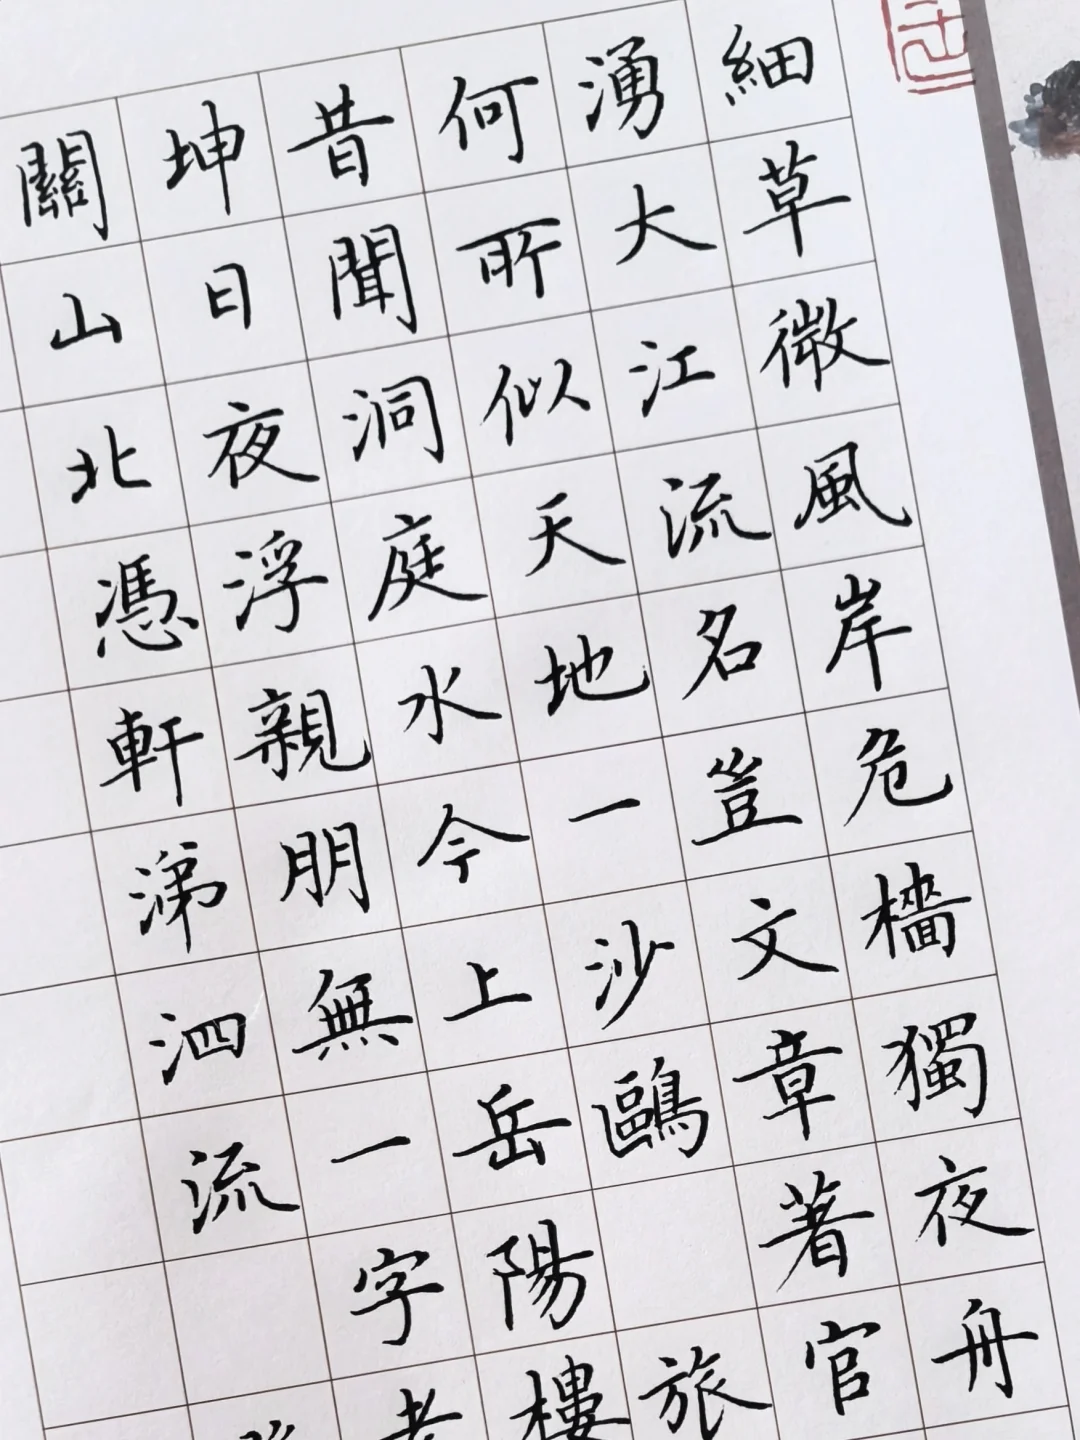 細草微風岸危檣獨夜舟
湧大江流名豈文章著官
何所似天地一沙鷗 旅
昔聞洞庭水今上岳陽樓
坤日夜浮親朋無一字老
關山北憑軒涕泗流